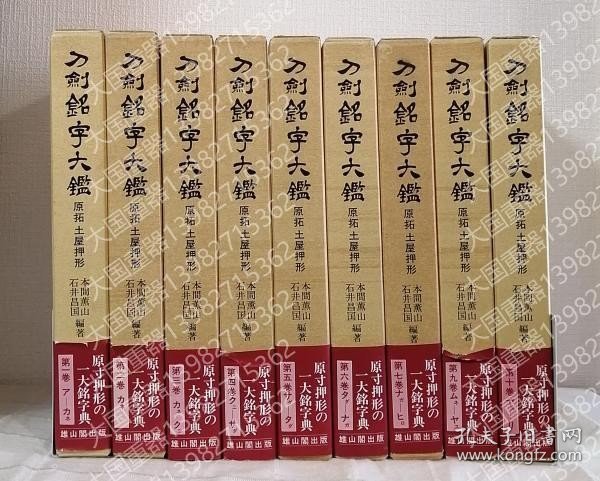 刀劍銘字大鑑
原拓 土屋押形
本間薫山
石井昌国 編著
原寸押形の
一大銘字典
第一巻 ア―カネ
雄山閣出版
刀劍銘字大鑑
原拓 土屋押形
本間薫山
石井昌国 編著
原寸押形の
一大銘字典
第二巻 カ
雄山閣出版
刀劍銘字大鑑
原拓 土屋押形
本間薫山
石井昌国 編著
原寸押形の
一大銘字典
第三巻 カ―ク
雄山閣出版
刀劍銘字大鑑
原拓 土屋押形
本間薫山
石井昌国 編著
原寸押形の
一大銘字典
第四巻
雄山閣出版
刀劍銘字大鑑
原拓 土屋押形
本間薫山
石井昌国 編著
原寸押形の
一大銘字典
第五巻 サ―タ
雄山閣出版
刀劍銘字大鑑
原拓 土屋押形
本間薫山
石井昌国 編著
原寸押形の
一大銘字典
第六巻 タ―ナガ
雄山閣出版
刀劍銘字大鑑
原拓 土屋押形
本間薫山
石井昌国 編著
原寸押形の
一大銘字典
第七巻 ナ―ヒロ
雄山閣出版
刀劍銘字大鑑
原拓 土屋押形
本間薫山
石井昌国 編著
原寸押形の
一大銘字典
第九巻 ムネ
雄山閣出版
刀劍銘字大鑑
原拓 土屋押形
本間薫山
石井昌国 編著
原寸押形の
一大銘字典
第十巻
雄山閣出版
大国重器13982715362
孔夫子旧书网
www.kongfz.com